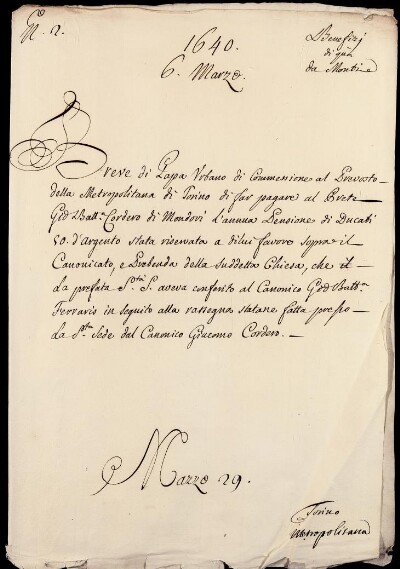 N. 2.
1640.
6. Marzo.
Benefizj
di quà
da Monti
Breve di Papa Urbano di Commessione al Prevosto
della Metropolitana di Torino di far pagare al Prete
Gio Batt.a Cordero di Mondovì l'annua Pensione di Ducati
50. d'Argento stata riservata a di lui favore sopra il
Canonicato, e Prebenda della suddetta Chiesa, che il
La prefata S.tà S. aveva conferito al Canonico Gio Batt.a
Ferraris in seguito alla rassegna statane fatta presso
la S.ta Sede dal Canonico Giacomo Cordero.
Marzo 29.
Torino
Metropolitana